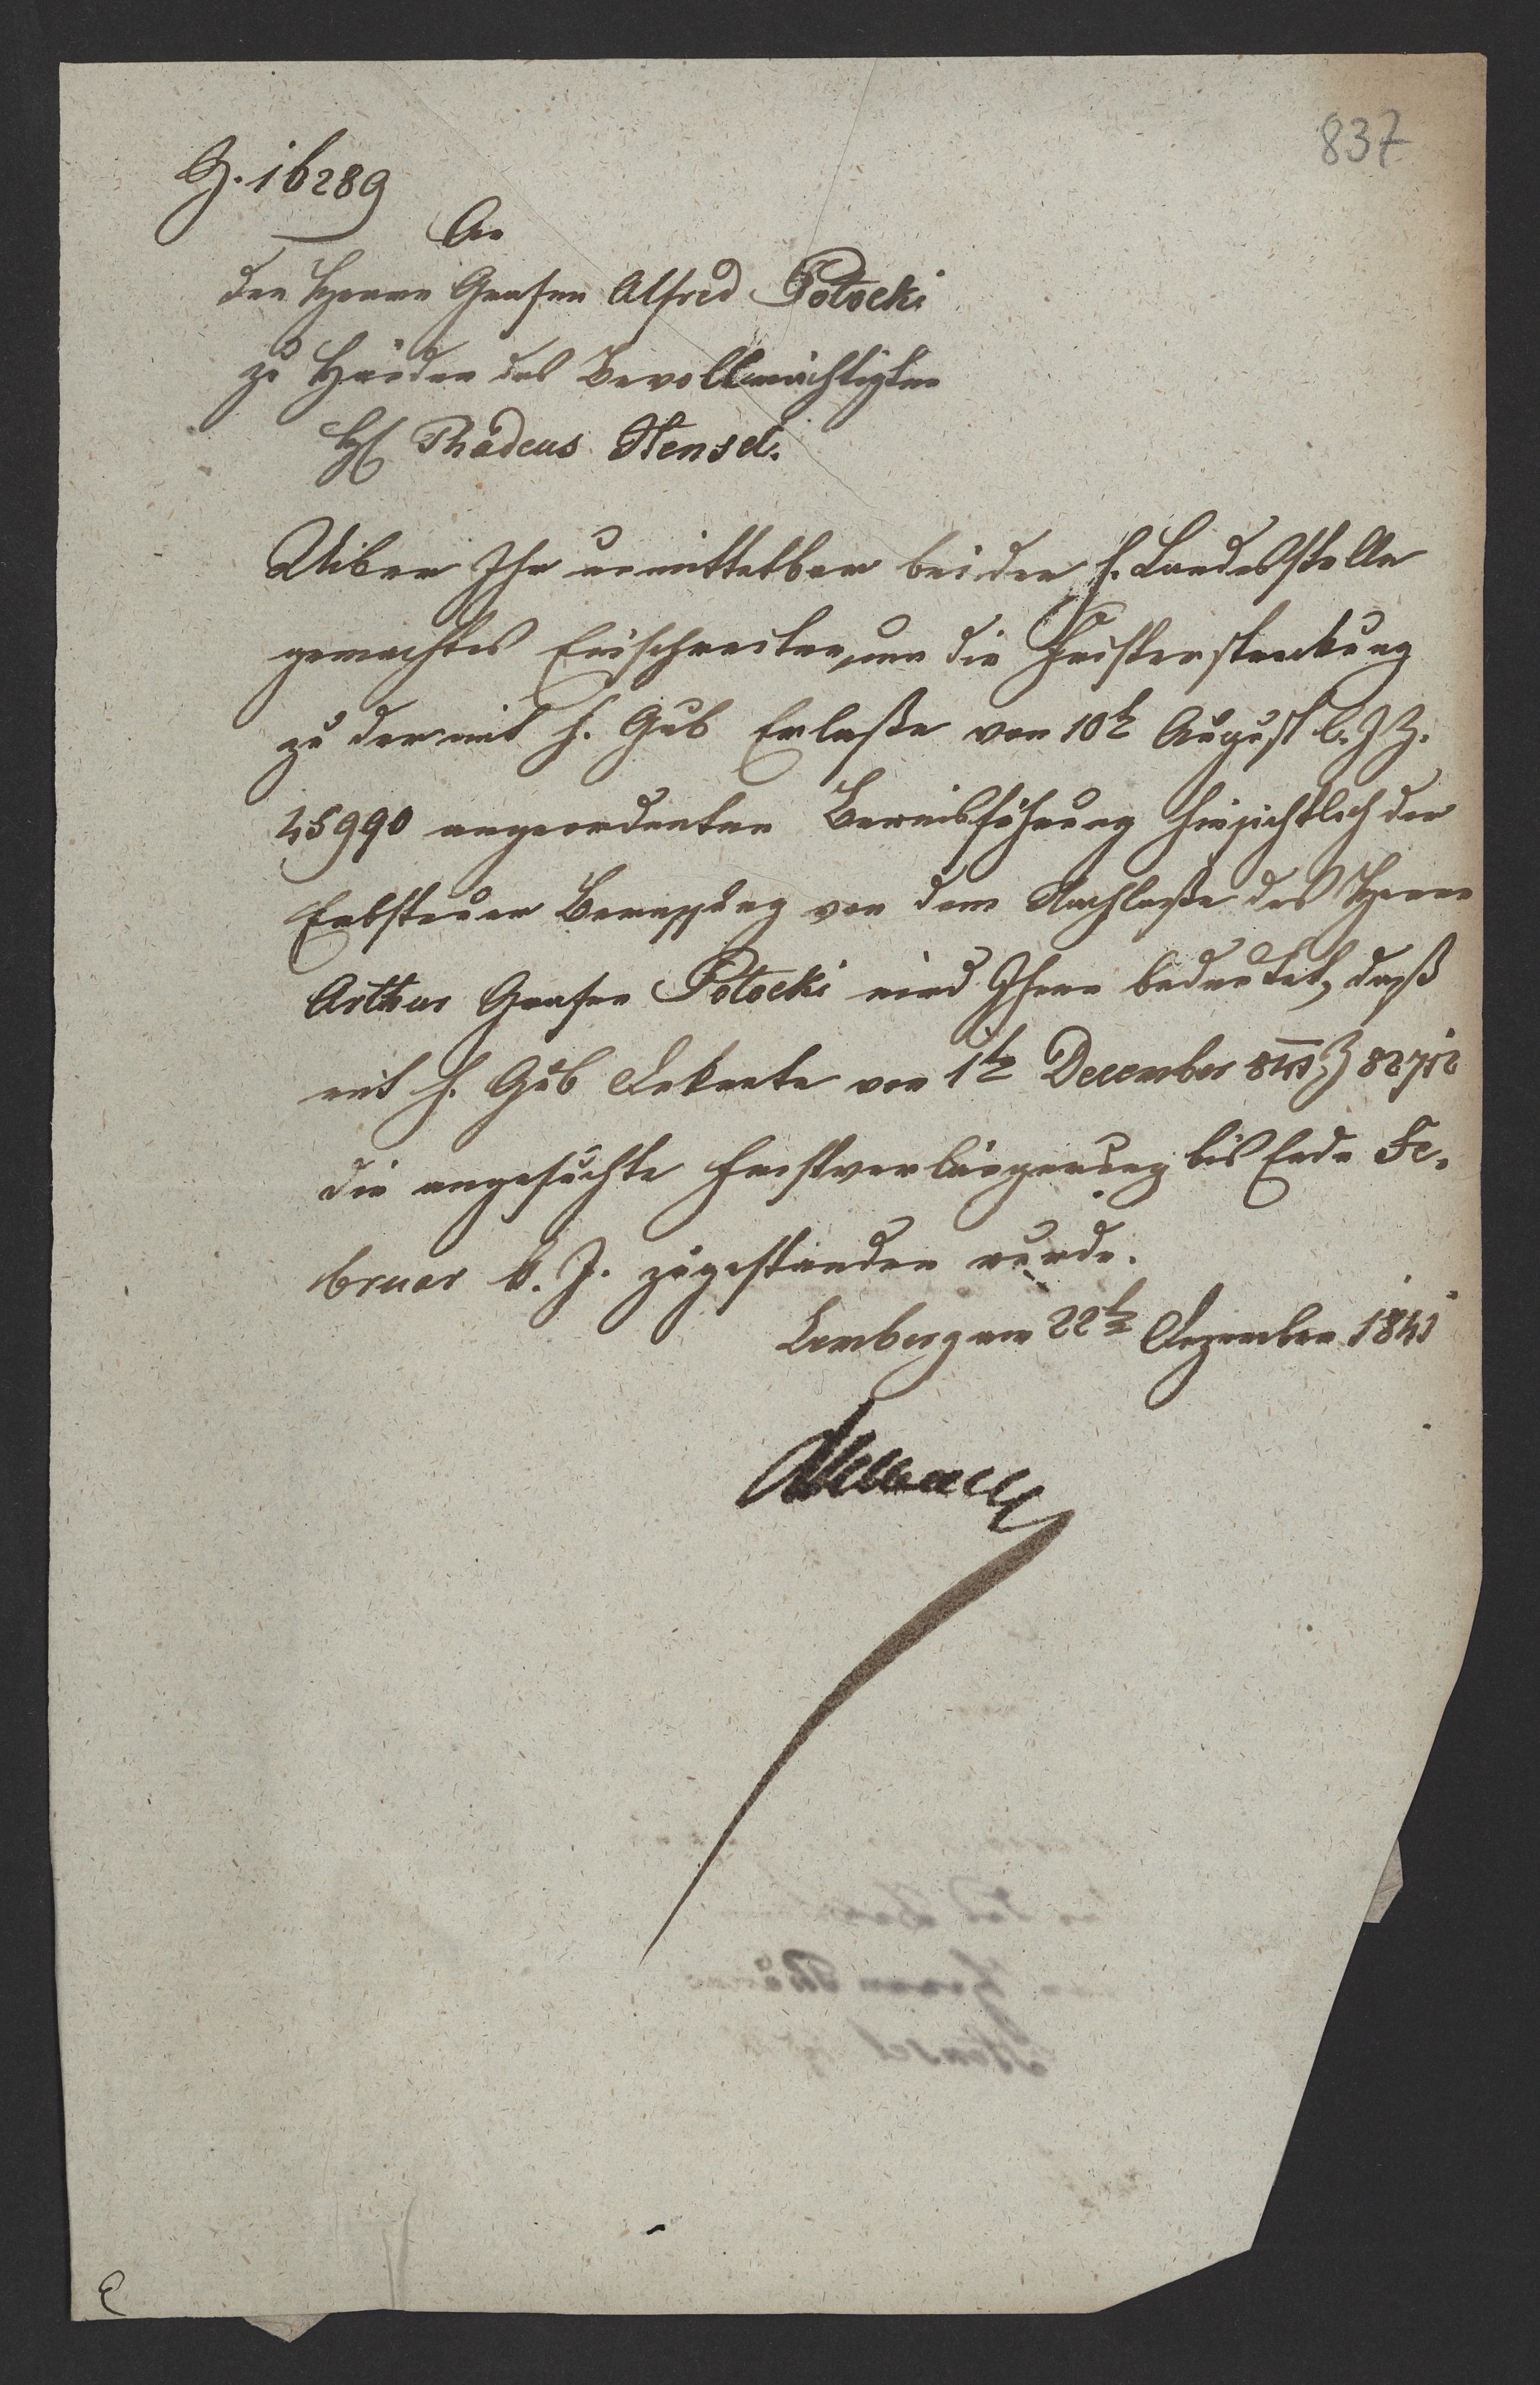 837
Z. 16289
An
den Herrn Grafen Alfred Potocki
zu Händen des Bevollmächtigten
H Thadeus Hensel.
Uiber Ihr unmittelbar bei der h. Landesstelle
gemachtes Einschreiten, um die Fristerstreckung
zu der mit h. Gub Erlaße vom 10t August l. J. Z.
45990 angeordneten Beweisführung hinsichtlich der
Erbsteuer Bemessung von dem Nachlaße des Herrn
Arthur Grafen Potocki wird Ihnen bedeutet, daß
mit h. Gub Dekrete vom 1tn December Z 82712
die angesuchte Fristverlängerung bis Ende Fe-
bruar k. J. zugestanden wurde.
Lemberg am 22tn Dezember 1841